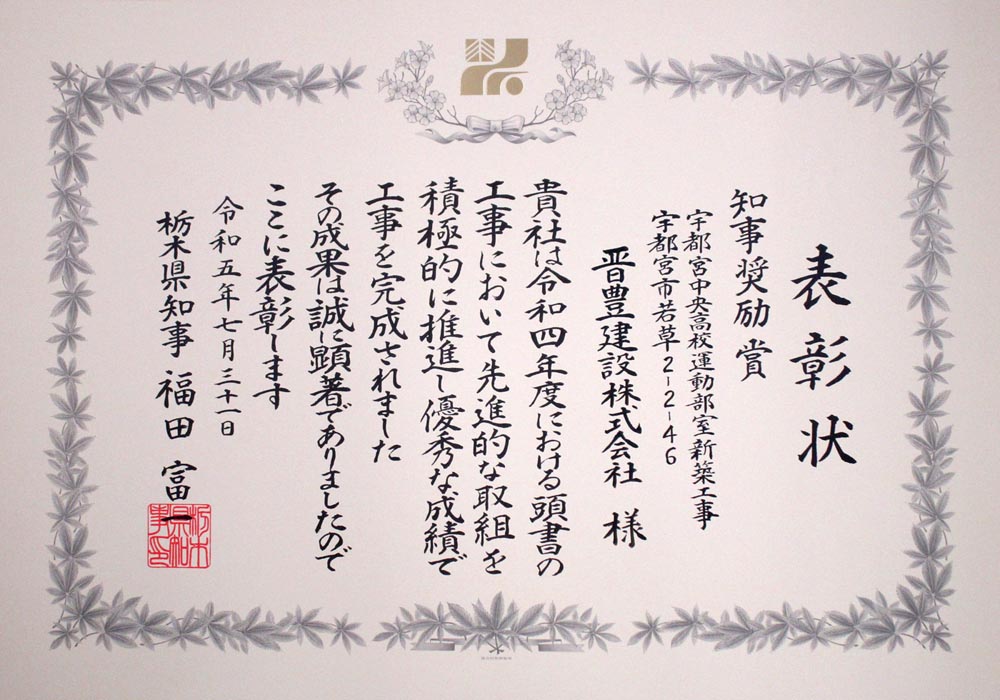 表彰状
知事奨励賞
宇都宮中央高校運動部室新築工事
宇都宮市若草2-2-46
晋豊建設株式会社 様
貴社は令和四年度における頭書の
工事において先進的な取組を
積極的に推進し優秀な成績で
工事を完成されました
その成果は誠に顕著でありましたので
ここに表彰します
令和五年七月三十一日
栃木県知事 福田富一
栃木県知事印